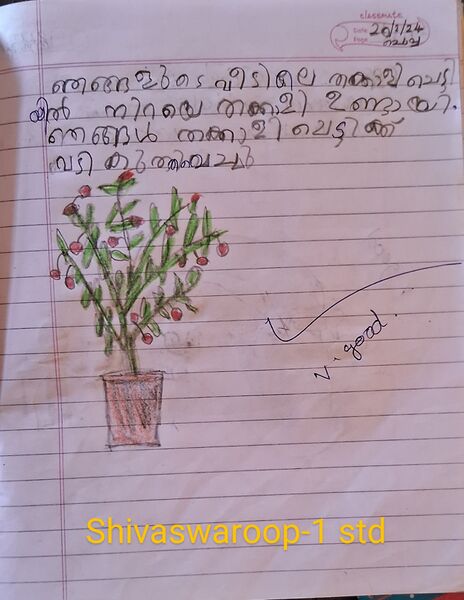 classmate
Date 20/2/24
Page ചൊവ്വ
ഞങ്ങളുടെ വീട്ടിലെ തക്കാളി ചെട്ടി
യിൽ നിറയെ തക്കാളി ഉണ്ടായി.
ഞങ്ങൾ തക്കാളി ചെട്ടിക്ക്
വടി കുത്തിവെച്ചു
V. good
Shivaswaroop-1 std